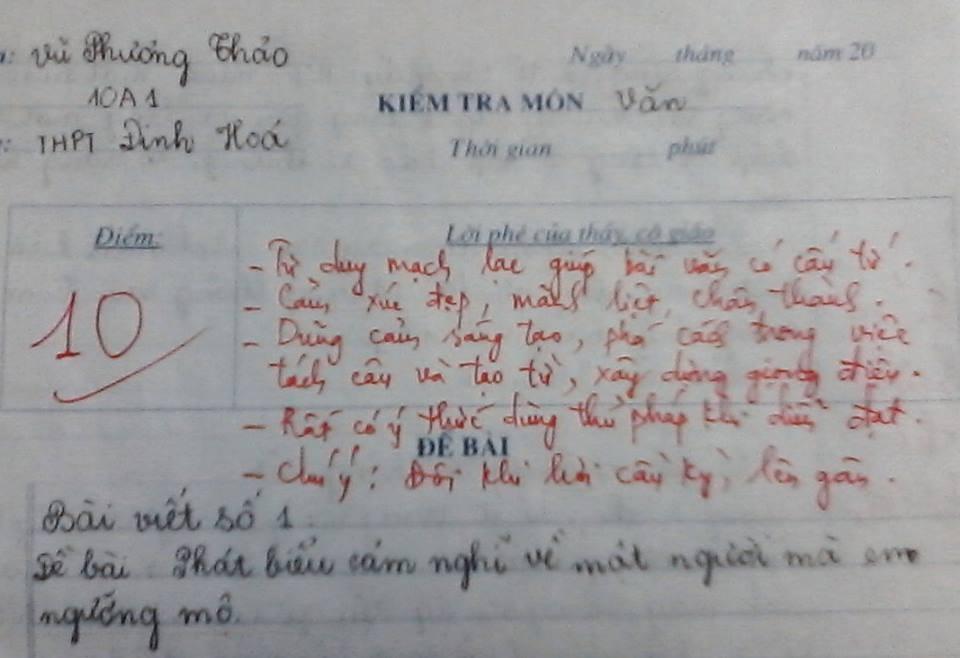 : Vũ Phương Thảo Ngày tháng năm 20
10A1 KIỂM TRA MÔN Văn
: THPT Định Hoá Thời gian phút
Điểm: Lời phê của thầy, cô giáo
10
- Tư duy mạch lạc giúp bài văn có cấu tứ.
- Cảm xúc đẹp, mãnh liệt, chân thành.
- Dũng cảm sáng tạo, phá cách trong việc
tách câu và tạo từ, xây dựng giọng điệu.
- Rất có ý thức dùng thủ pháp khi diễn đạt.
ĐỀ BÀI
- Chú ý: Đôi khi hơi cầu kỳ, lên gân.
Bài viết số 1
Đề bài: Phát biểu cảm nghĩ về một người mà em
ngưỡng mộ.